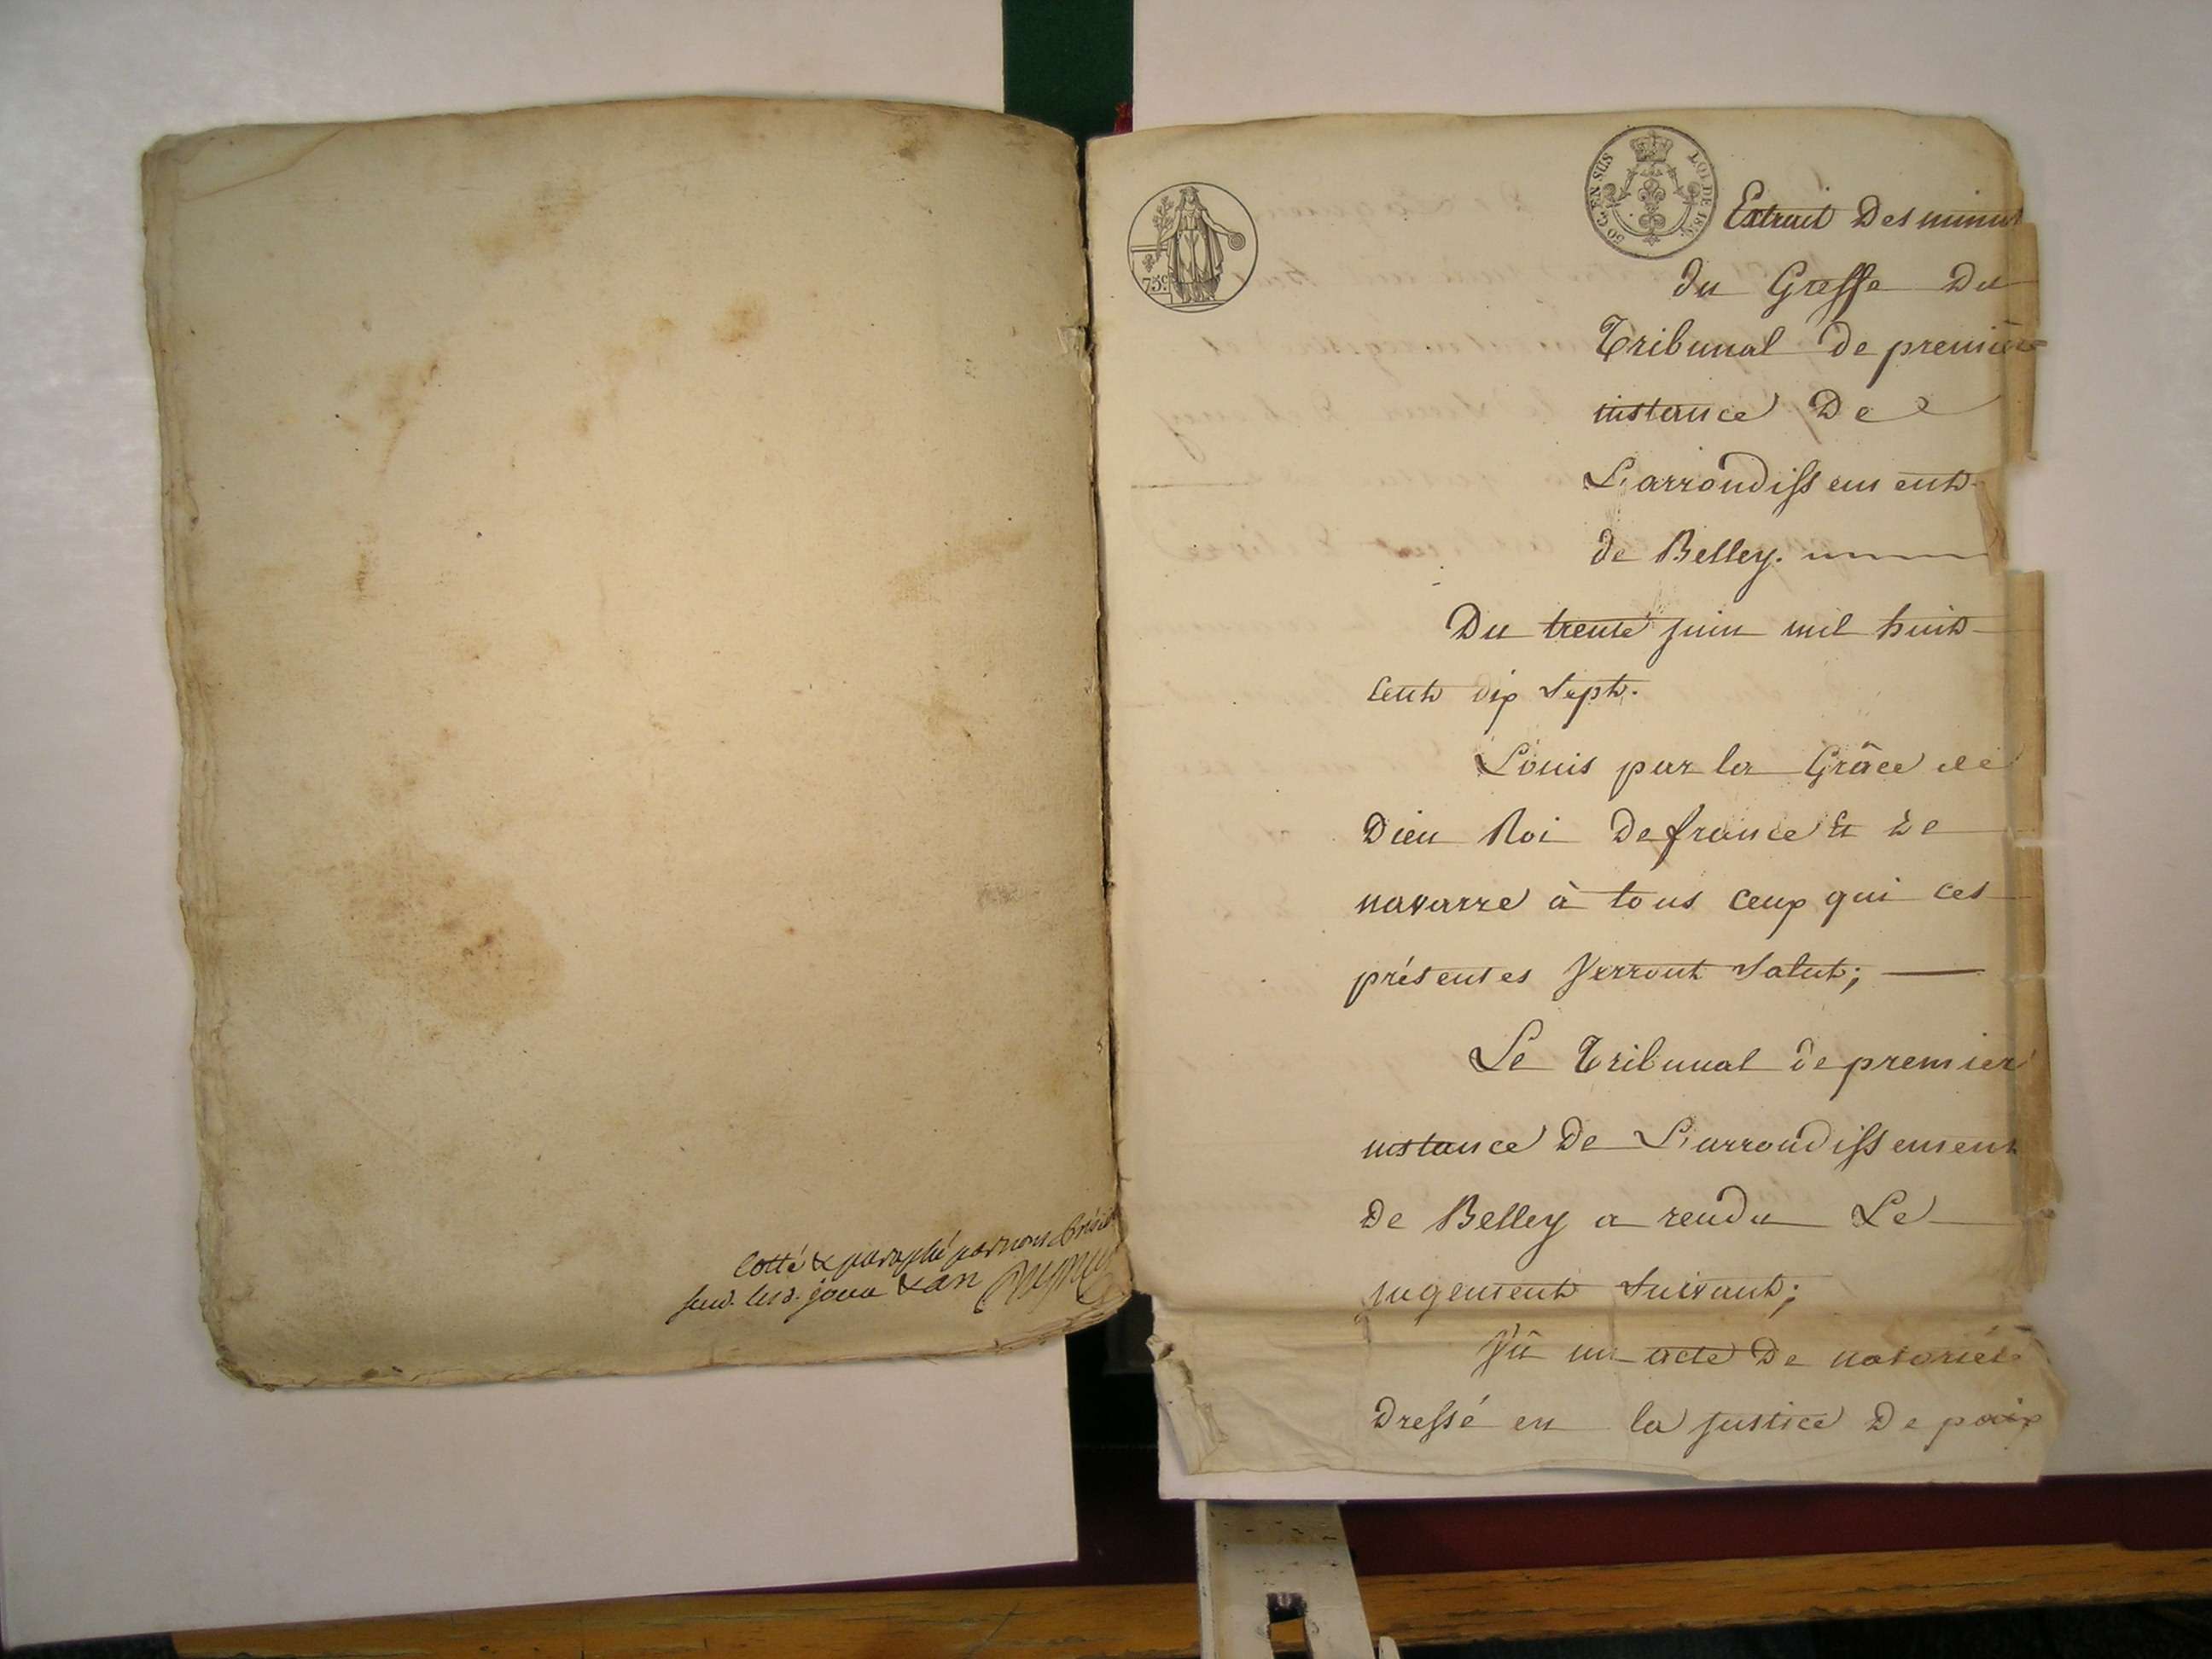 Cotté & paraphé par nous
jour & an
75c
50 C. EN SUS LOI DE 1816
Extrait Des minut
du Greffe Du
Tribunal de première
instance De
L'arrondissement
de Belley.
Du trente juin mil huit
Cent dix Sept.
Louis par la Grâce de
Dieu Roi De france & De
navarre à tous Ceux qui ces
présentes Verront Salut;
Le Tribunal de premier
instance De L'arrondissement
De Belley a rendu Le
jugement Suivant;
Vû un acte De notoriété
Dressé en la justice De paix